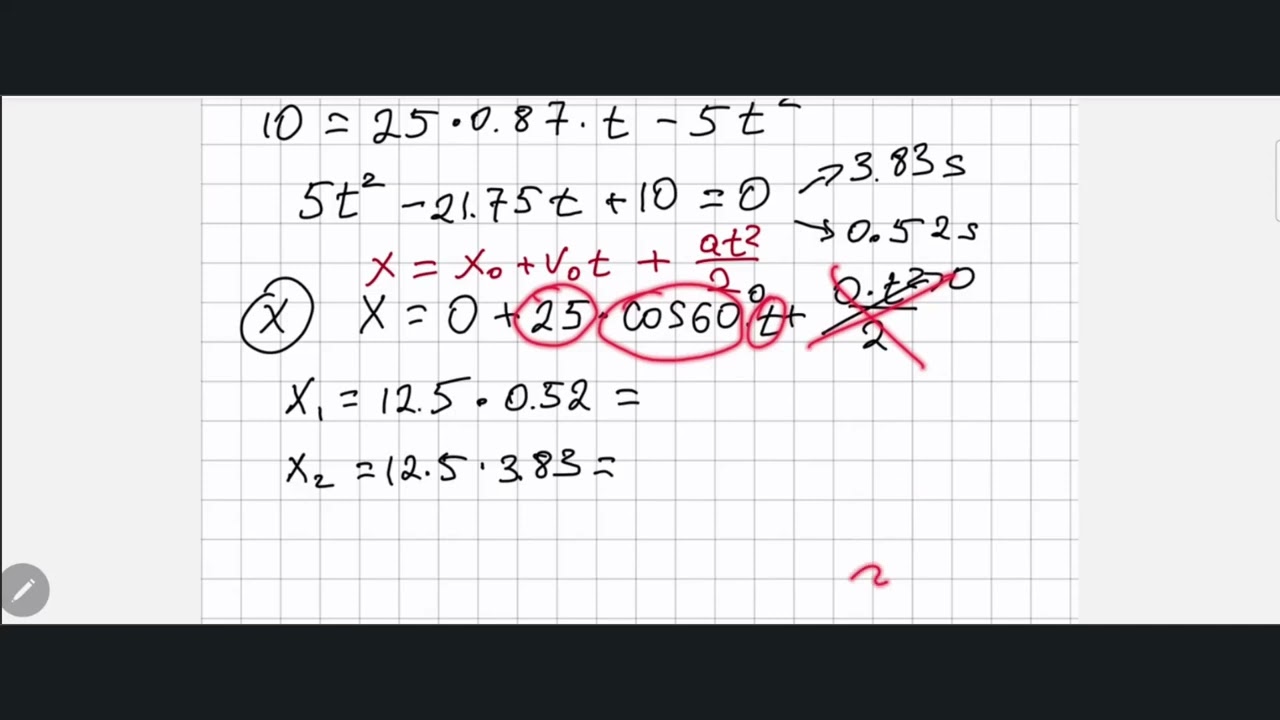 10 = 25 · 0.87 · t − 5t²
5t² − 21.75t + 10 = 0 → 3.83s
→ 0.52s
x = x₀ + v₀t + at²/2
x X = 0 + 25 · cos60° · t + 0·t²/2 = 0
x₁ = 12.5 · 0.52 =
x₂ = 12.5 · 3.83 =